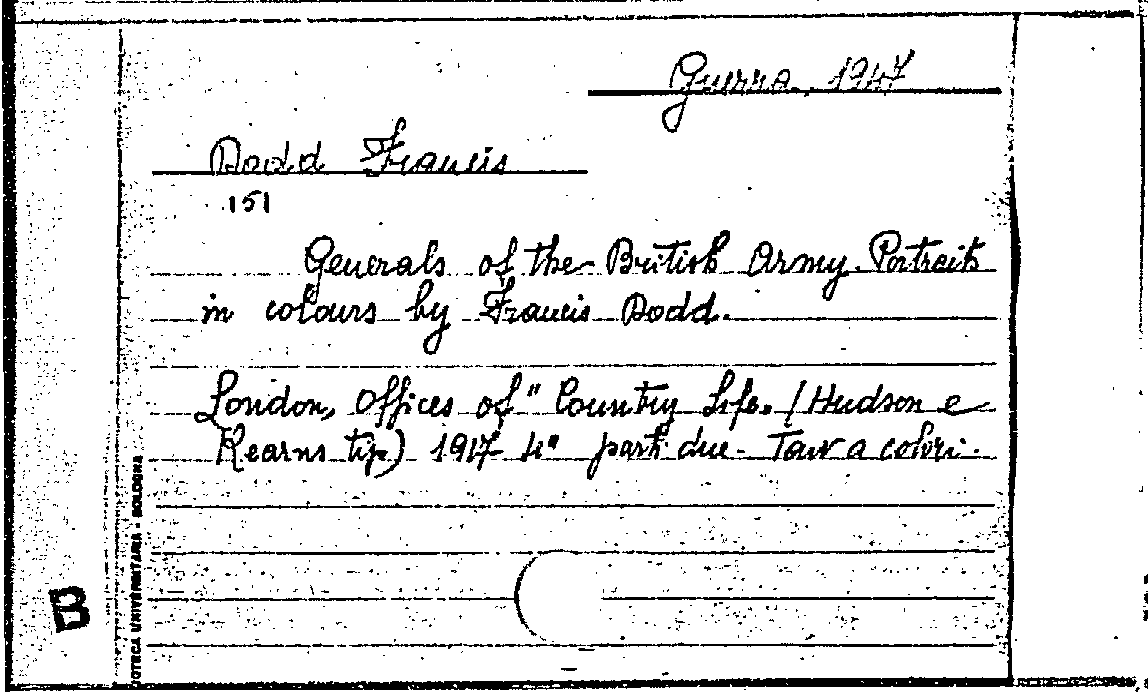 Guerra, 1917
Dodd Francis
151
Generals of the British Army. Portraits
in colours by Francis Dodd.
London, Offices of "Country Life. (Hudson e
Kearns tip) 1917 4° parti due. Tav a colori.
B
OTECA UNIVERSITARIA - BOLOGNA